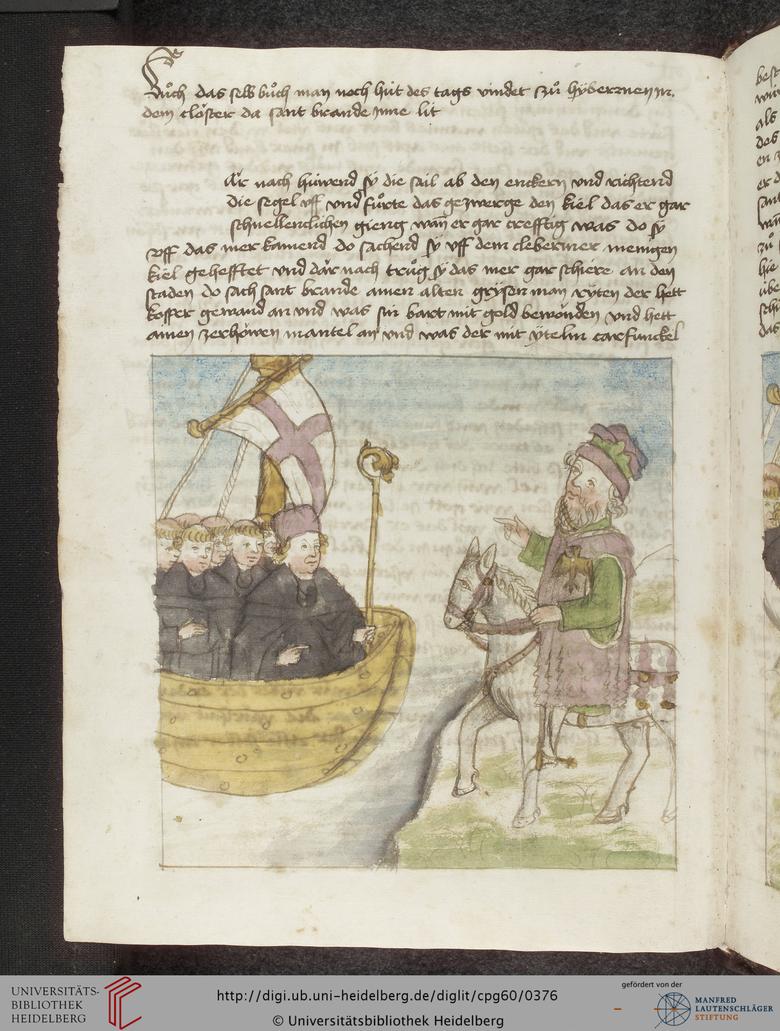 Auͦch das selb buͦch man noch hùt des tags vindet zuͦ hÿbernen in
dem closter da sant brande jnne lit
Ar nach huwend sÿ die sail ab den enckern vnd richtend
die segel vff vnd fuͦrte das gezwerge den kiel das er gar
schnellenclichen gieng wan̄ er gar crefftig was do sÿ
vff das mer kamend do sachend sÿ vff dem clebermer mengen
kiel gehefftet vnd dar nach truͦg sÿ das mer gar schiere an den
staden do sach sant brande ainen alten grÿsen man rÿten der hett
gewand an vnd was sin bart mit gold bewonden vnd hett
ainen zerhöwen mantel an vnd was der mit ÿtelm carfunckel
best
als
des
en
er
sant
zuͦ
hie
das
UNIVERSITÄTS-
BIBLIOTHEK
HEIDELBERG
http://digi.ub.uni-heidelberg.de/diglit/cpg60/0376
© Universitätsbibliothek Heidelberg
gefördert von der
MANFRED
LAUTENSCHLÄGER
STIFTUNG